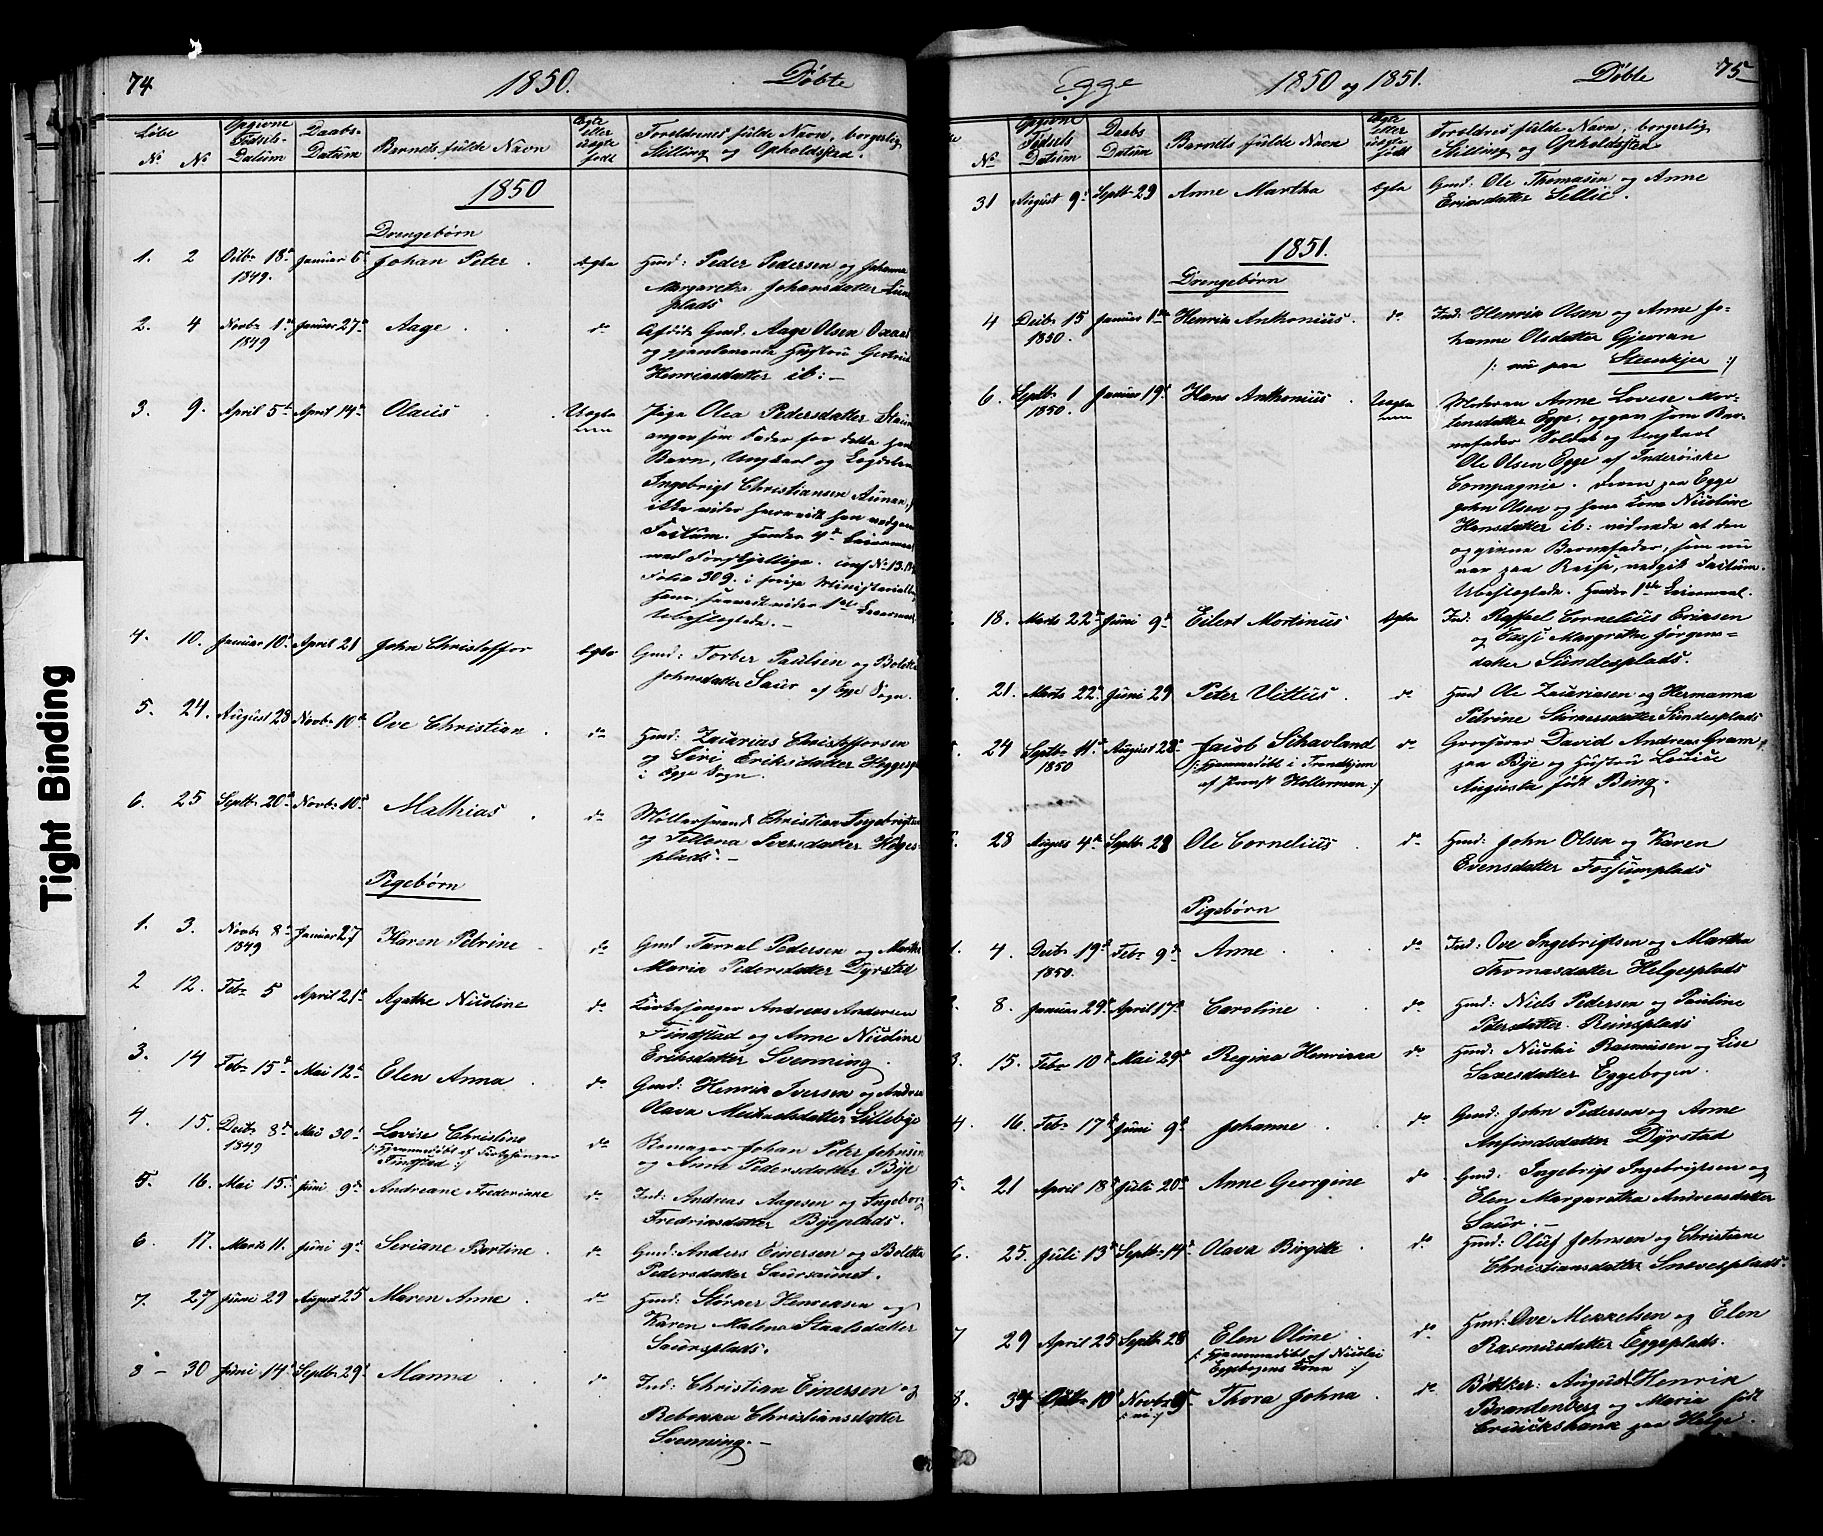 74
1850.
Døbte
Løbe
No No
Opgivne Fødsels-Datum
Daabs-Datum
Barnets fulde Navn
Ægte eller uægte født
Forældrenes fulde Navn, borgerlig Stilling og Opholdssted.
1850
Drengebørn
1. 2 Octbr 18de 1849. Januar 6te Johan Peter. Ægte Hmd: Peder Pedersen og Johanna
Margaretha Johansdatter
plads
2. 4 Novbr 1ste 1849 Januar 27de Aage. do Gmd. Aage Olsen
og Hustru
Henricsdatter ib:—
3. 9. April 5te April 14de Olaus Uægte Pige Olea Pedersdatter
angav som Fader for dette
Barn, Ungkarl og
Ingebrigt Christiansen Aunan,
ikke videre
Factum. Hendes 4de
med Forskjellige. conf No 13.
Folio 309. i forige Ministerialbog
Hans, saavidt vides 1ste
Ubeslægtede.—
4. 10. Januar 10de April 21 John Christoffer Ægte Gmd: Torber Paulsen og
Johnsdatter Saur af Egge Sogn.
5. 24. August 28 Novbr 10de Ove Christian. do Hmd: Zacarias Christoffersen
og Siri Eriksdatter
i Egge Sogn.
6. 25 Septbr 20de Novbr 10de Mathias. do Møllersvend Christian
og Iversdatter
plads.—
Pigebørn
1. 3. Novbr 8de 1849 Januar 27 Karen Petrine. do Gmd. Pedersen og
Maria Pedersdatter Dyrstad
2 12. Febr 5 April 21de Agathe Nicoline do Kirkesanger Andreas Andersen
Findstad og Anne Nicoline
Eriksdatter Svenning.
3. 14 Febr 15de Mai 12te Elen Anna. do Gmd: Henric Iversen og
Olava Lillebye
4. 15. Decbr 8de 1849 Mai 30. Lovise Christine
/:Hjemmedøbt af Kirkesanger
Findstad:/ do Johan Peter Johnsen
og Anne Pedersdatter Bye
5. 16. Mai 15. Juni 9de Andreane Frederikke do Ind: Andreas Aagesen og Ingeborg
Fredricsdatter Byeplads.
6. 17. Marts 11. Juni 9de Seriane Bertine. do Gmd: Anders Einersen og
Pedersdatter Saursaunet.
7. 27 Juni 29 August 25 Maren Anne. do Hmd: Størker Henricsen og
Karen Malena Staalsdatter
Saursplads.
8 – 30 Juni 14. Septbr 29. Manna. do Ind: Christian Einersen og
Rebekka Christiansdatter
Svenning.—
Egge
1850 og 1851.
Døbte
75
No
Opgivne Fødsels Datum
Daabs Datum
Barnets fulde Navn
Ægte eller uægte født
Forældres fulde Navn, borgerlig Stilling og Opholdssted.
31 August 9de Septbr 29 Anne Martha Ægte Gmd: Ole Thomasen og Anne
Ericsdatter Sellie.
1851.
Drengebørn
4 Decbr 15 1850. Januar 1ste Henrik Anthonius. do Ind: Henrik Olsen og Anne Jo-
hanne Olsdatter Gjevran
/: nu paa Steenkjer:/
6. Septbr 1 1850. Januar 19de Hans Anthonius. Uægte Moderen Anne Lovise Mor-
tensdatter Egge, opgav som Bar-
nefader Soldat og Ungkarl
Ole Olsen Egge af Inderøiske
Compagnie. paa Egge
John Olsen og hans Kone Nicoline
Hansdatter ib: vidnede at den
opgivne Barnefader, som nu
var paa Reise, vedgik Factum.
Ubeslægtede. Hendes 1ste Leiermaal.
18. Marts 22de Juni 9de Eilert Mortinus Ægte Ind: Raffael Cornelius Ericsen
og Margrethe Jørgens-
datter Sundesplads.
21. Marts 22de Juni 29 Peter Vittus. do Hmd Ole Zacariasen og Hermanna
Petrine Størkersdatter Sundesplads
24 Septbr 11te 1850 August 28de Jacob Schavland
/: Hjemmedøbt i Trondhjem
af Præst Hellerman:/ do David Andreas Gram
paa Bye og Hustru Louise
Augusta født Bing.
28 August 4de Septbr 28 Ole Cornelius. do Hmd: John Olsen og Karen
Evensdatter Fossumplads
Pigebørn
1. 4. Decbr 19de 1850. Febr 9de Anne. do Ind: Ove Ingebrigtsen og Martha
Thomasdatter Helgesplads
8. Januar 29de April 17de Caroline. do Hmd: Niels Pedersen og Pauline
Petersdatter Reinsplads
3. 15. Febr 10de Mai 29de Regina Henrikka do Hmd: Nicolai Rasmusen og Lise
Eggebogen.
4. 16. Febr 17de Juni 9de Johanne. do Gmd: John Pedersen og Anne
Anfindsdatter Dyrstad
5. 21 April 18de Juli 20de Anne Georgine do Gmd: Ingebrigt Ingebrigtsen og
Elen Margaretha Andreasdatter
Saur.—
6. 25. Juli 13de Septbr 14de Olava Birgitte. do Hmd: Oluf Johnsen og Christiane
Christiansdatter
7 29 April 25 Septbr 28 Elen Oline.
/: Hjemmedøbt af Nicolai
Eggebogens Kone:/ do Hmd: Ove Mekkelsen og Elen
Rasmusdatter Eggeplads.
8. Octbr 10de Novbr Thora Johna. do August Henrik
Brandenberg og Maria født
Cruickshank paa Helge.
Tight Binding